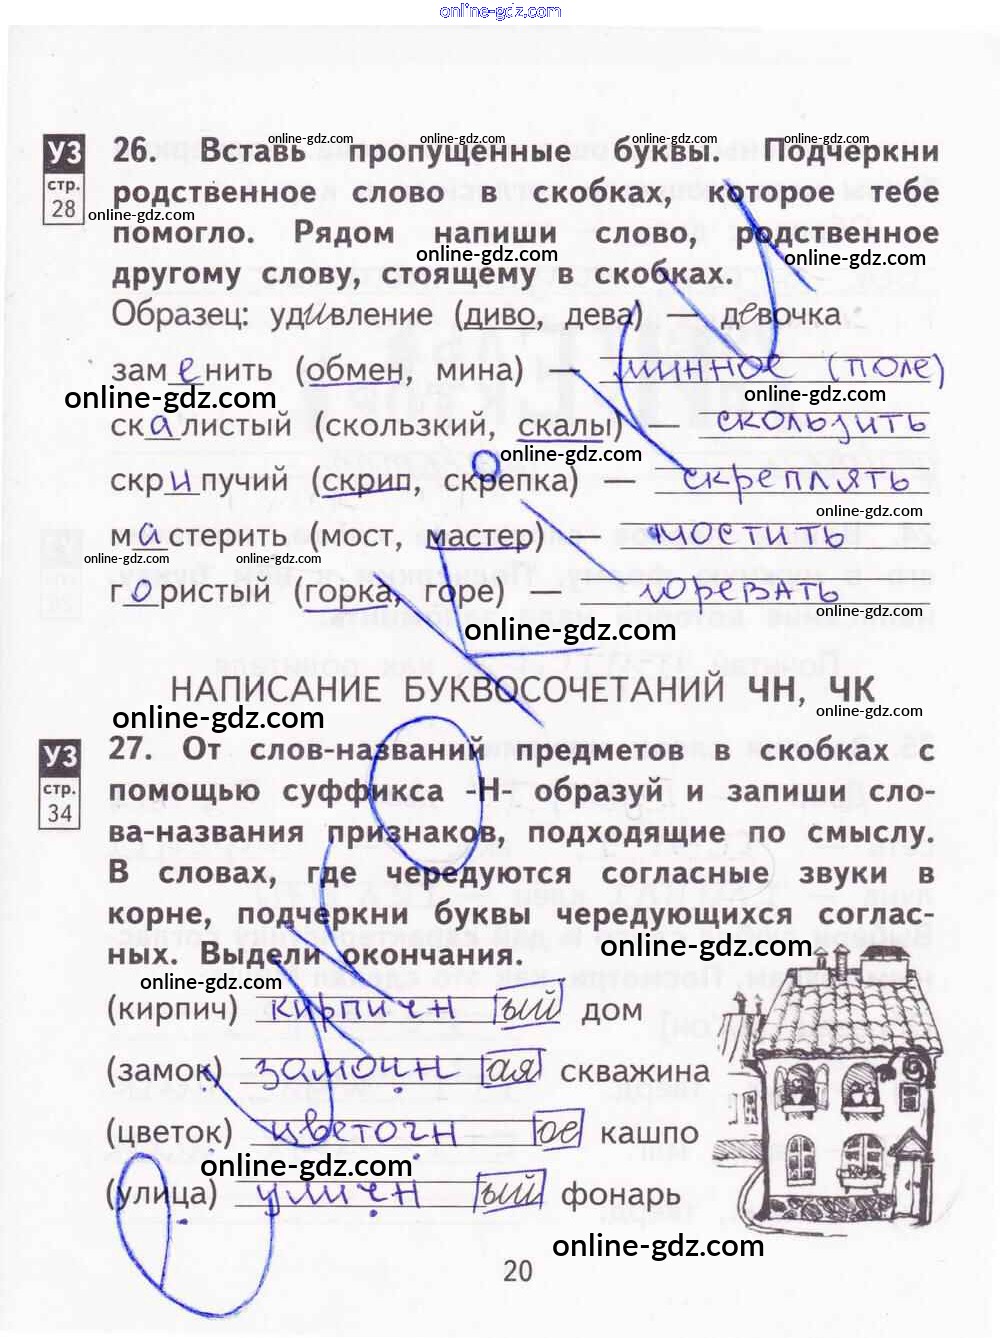 online-gdz.com
УЗ
стр.
28
online-gdz.com online-gdz.com online-gdz.com online-gdz.com
26. Вставь пропущенные буквы. Подчеркни
родственное слово в скобках, которое тебе
online-gdz.com
помогло. Рядом напиши слово, родственное
online-gdz.com online-gdz.com
другому слову, стоящему в скобках.
Образец: удивление (диво, дева) — девочка
зам е нить (обмен, мина) — минное (поле)
online-gdz.com online-gdz.com
ск а листый (скользкий, скалы) — скользить
online-gdz.com
скр и пучий (скрип, скрепка) — скреплять
online-gdz.com
м а стерить (мост, мастер) — мостить
online-gdz.com online-gdz.com online-gdz.com
г о ристый (горка, горе) — горевать
online-gdz.com
online-gdz.com
НАПИСАНИЕ БУКВОСОЧЕТАНИЙ ЧН, ЧК
online-gdz.com online-gdz.com
УЗ
стр.
34
27. От слов-названий предметов в скобках с
помощью суффикса -Н- образуй и запиши сло-
ва-названия признаков, подходящие по смыслу.
В словах, где чередуются согласные звуки в
корне, подчеркни буквы чередующихся соглас-
ных. Выдели окончания.
online-gdz.com
online-gdz.com
(кирпич) кирпичн ый дом
(замок) замочн ая скважина
(цветок) цветочн ое кашпо
online-gdz.com
(улица) уличн ый фонарь
online-gdz.com
20